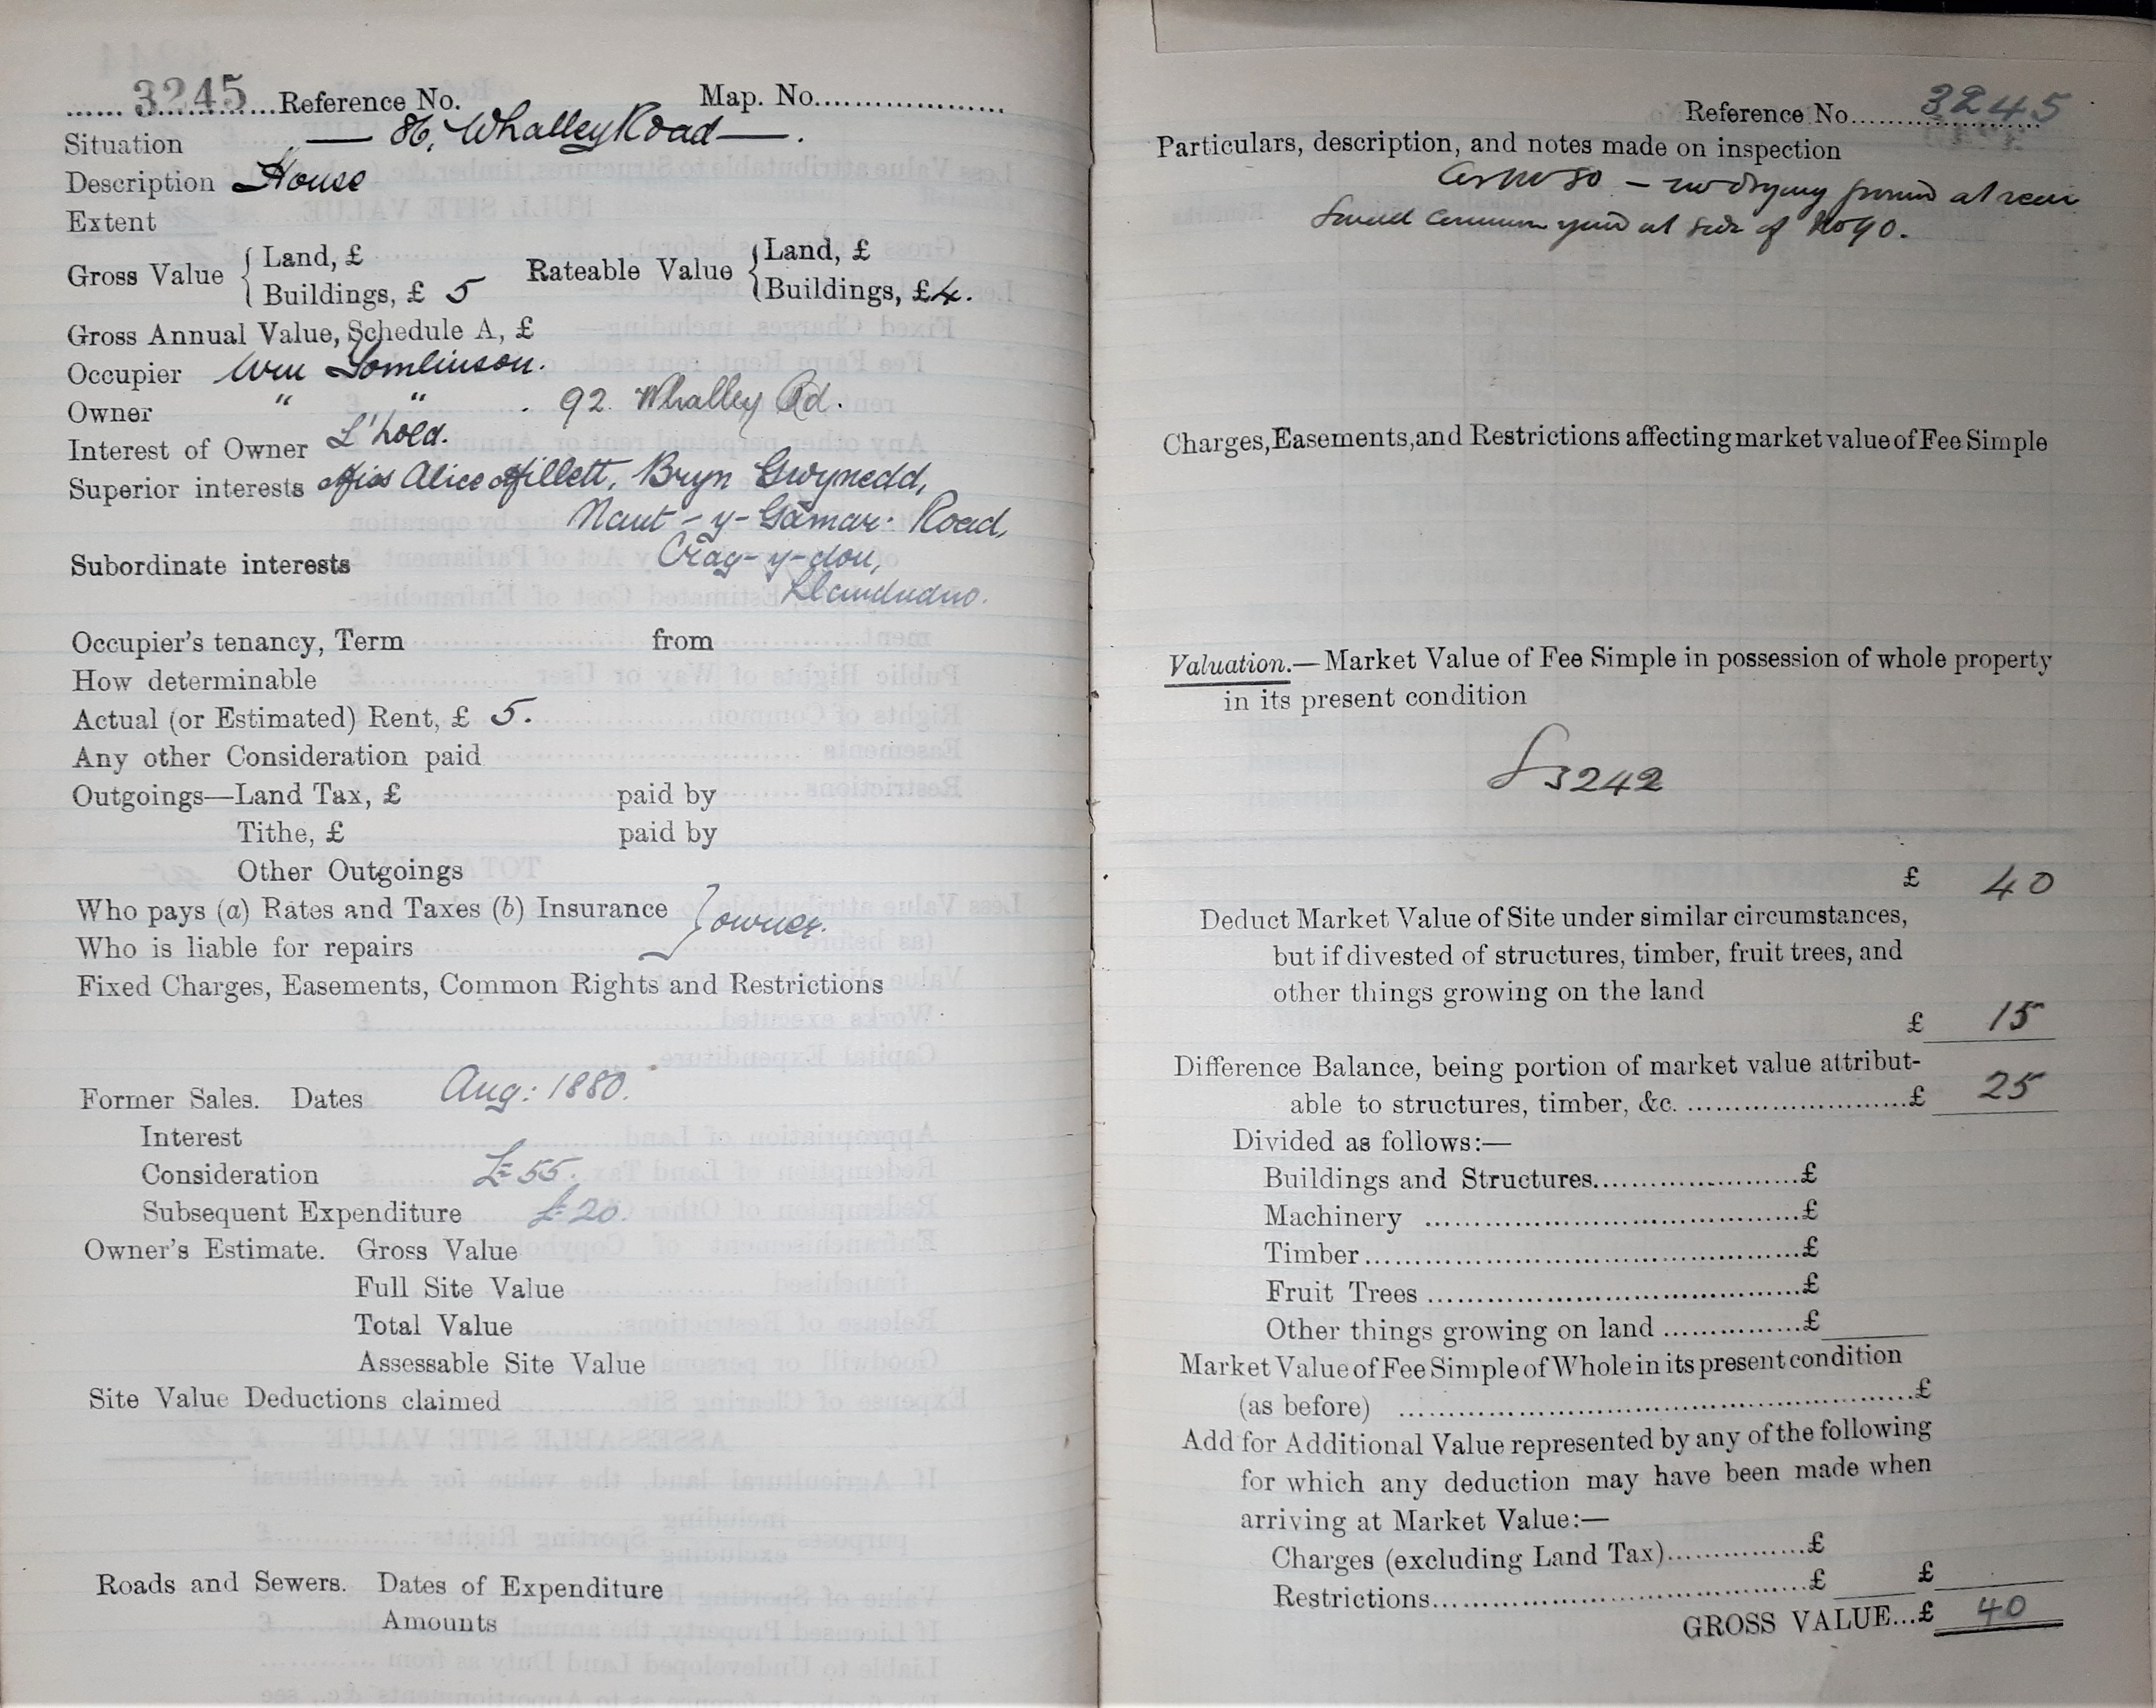 3245 Reference No. Map. No.
Situation — 86, Whalley Road —.
Description House
Extent
Gross Value { Land, £ Rateable Value { Land, £
Buildings, £ 5 Buildings, £4.
Gross Annual Value, Schedule A, £
Occupier Wm Tomlinson.
Owner " " . 92 Whalley Rd.
Interest of Owner L'hold.
Superior interests Miss Alice Hillett, Bryn Gwynedd,
Nant-y-Gamar Road,
Crag-y-don,
Subordinate interests
Llandudno.
Occupier's tenancy, Term from
How determinable
Actual (or Estimated) Rent, £ 5.
Any other Consideration paid
Outgoings—Land Tax, £ paid by
Tithe, £ paid by
Other Outgoings
Who pays (a) Rates and Taxes (b) Insurance } owner.
Who is liable for repairs
Fixed Charges, Easements, Common Rights and Restrictions
Former Sales. Dates Aug: 1880.
Interest
Consideration £55.
Subsequent Expenditure £20.
Owner's Estimate. Gross Value
Full Site Value
Total Value
Assessable Site Value
Site Value Deductions claimed
Roads and Sewers. Dates of Expenditure
Amounts
Reference No. 3245
Particulars, description, and notes made on inspection
As No 80 — no drying ground at rear
Small common yard at side of No 90.
Charges, Easements, and Restrictions affecting market value of Fee Simple
Valuation.—Market Value of Fee Simple in possession of whole property
in its present condition
3242
£ 40
Deduct Market Value of Site under similar circumstances,
but if divested of structures, timber, fruit trees, and
other things growing on the land
£ 15
Difference Balance, being portion of market value attribut-
able to structures, timber, &c. £ 25
Divided as follows:—
Buildings and Structures £
Machinery £
Timber £
Fruit Trees £
Other things growing on land £
Market Value of Fee Simple of Whole in its present condition
(as before) £
Add for Additional Value represented by any of the following
for which any deduction may have been made when
arriving at Market Value:—
Charges (excluding Land Tax) £
Restrictions £ £
GROSS VALUE...£ 40